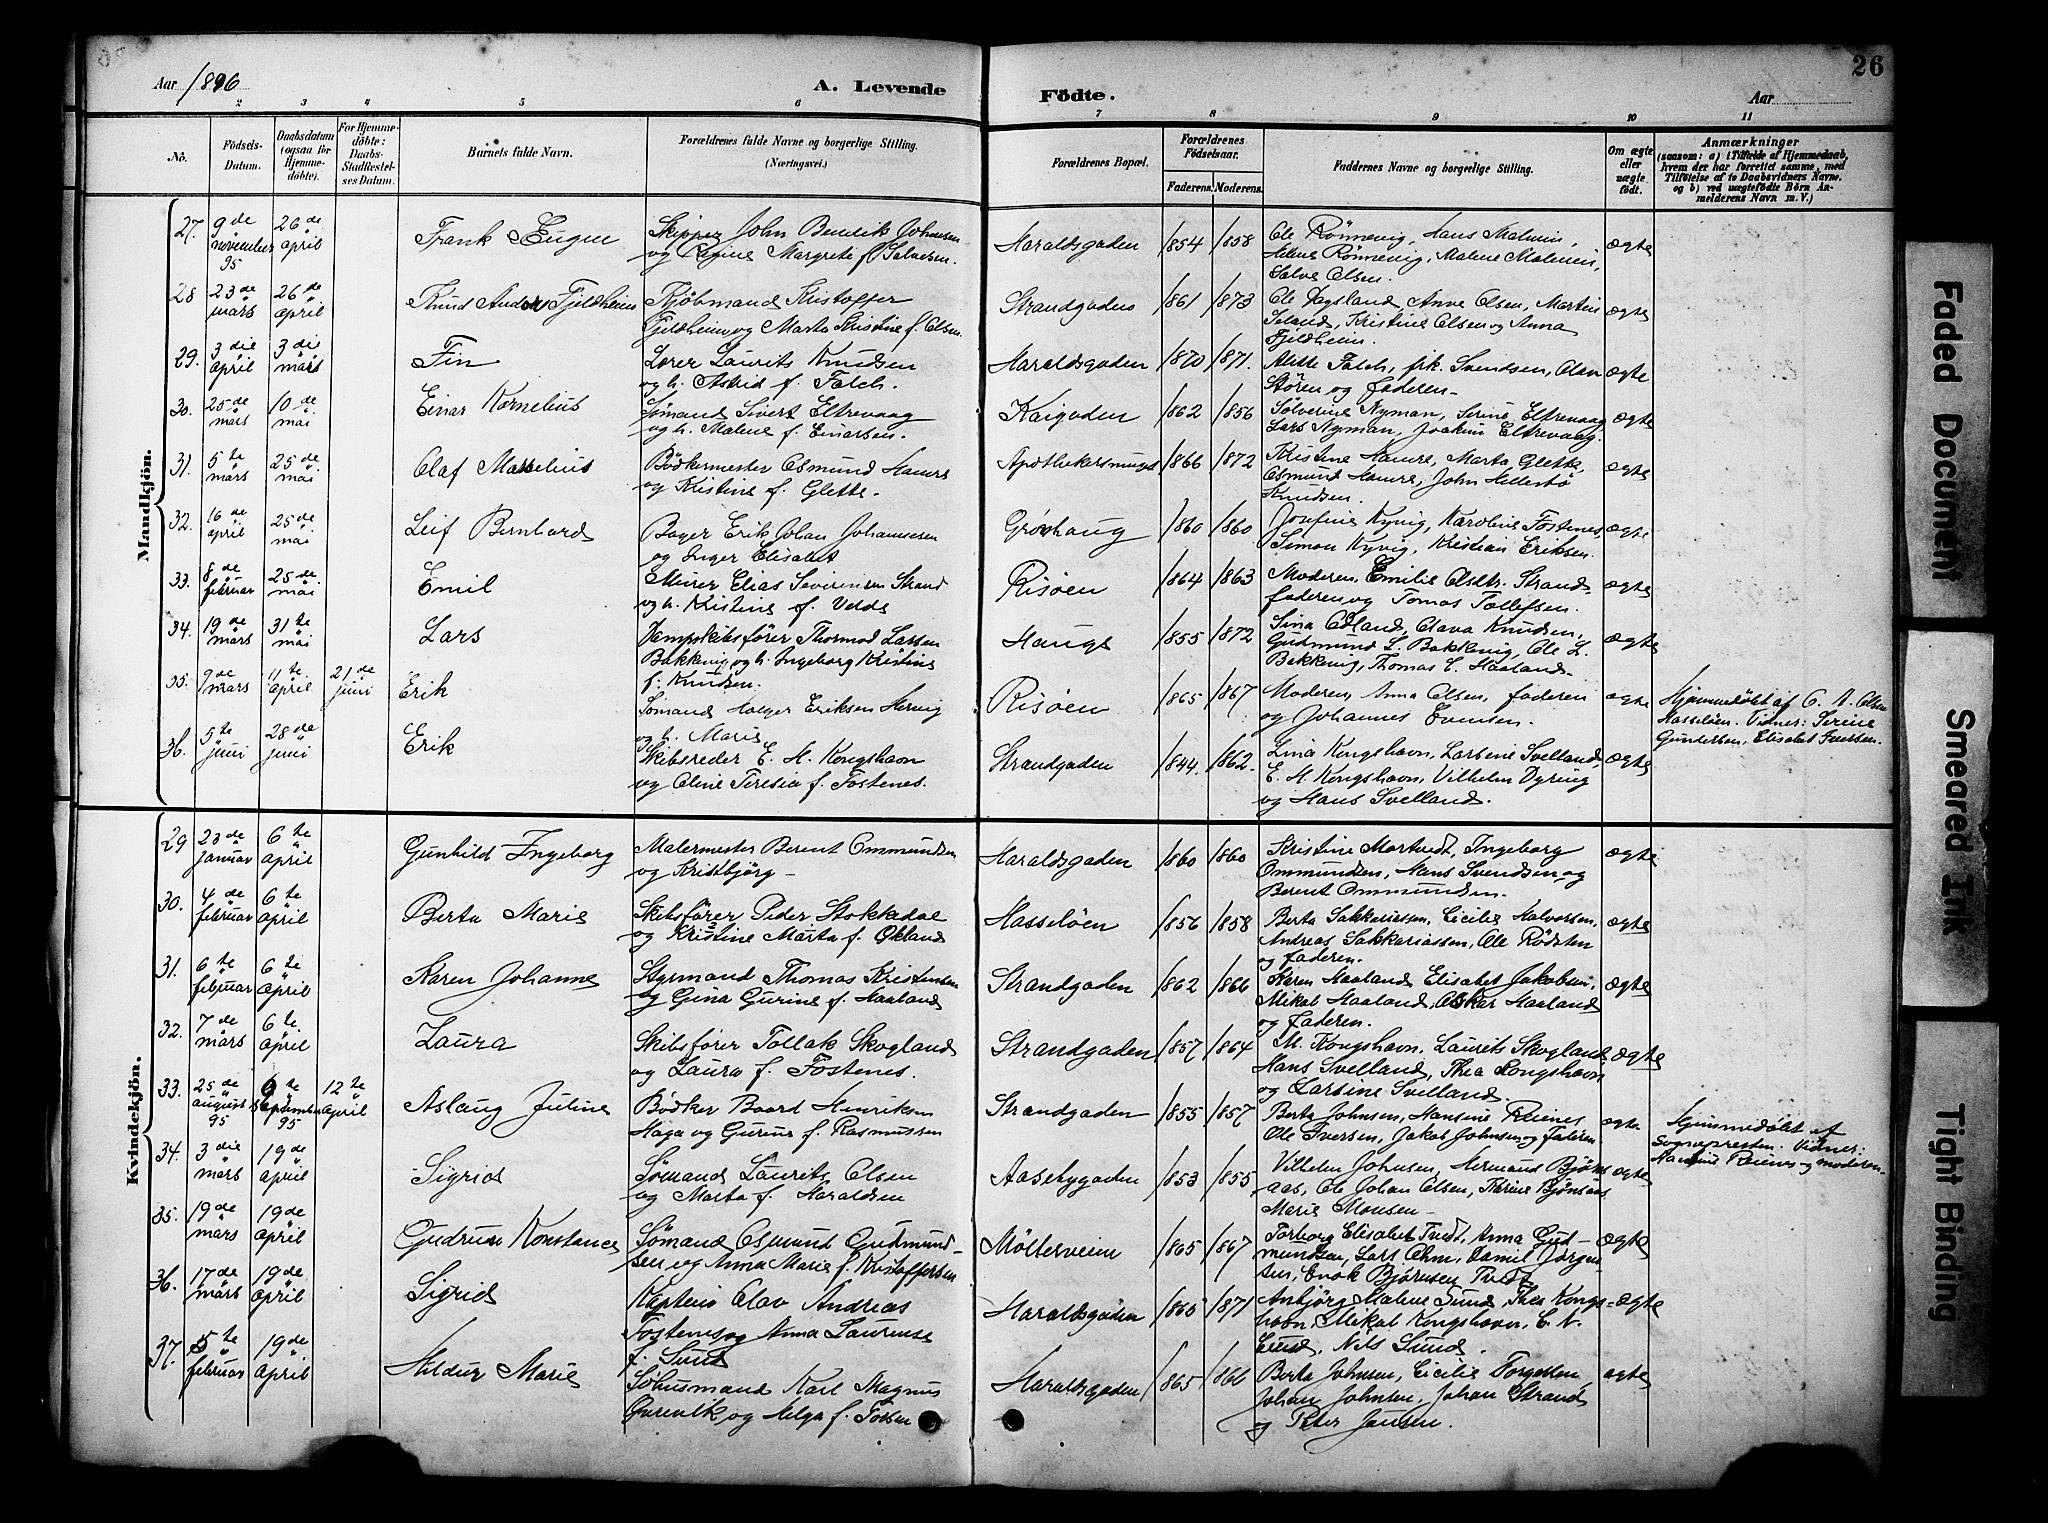 Aar 1896
A. Levende
Födte.
Aar
26
1 2 3 4 5 6 7 8 9 10 11
No.
Födsels-
Datum.
Daabsdatum
(ogsaa for
Hjemme-
döbte).
For Hjemme-
döbte:
Daabs-
Stadfæstel-
ses Datum.
Barnets fulde Navn.
Forældrenes fulde Navne og borgerlige Stilling.
(Næringsvei.)
Forældrenes Bopæl.
Forældrenes
Födselsaar.
Faderens. Moderens.
Faddernes Navne og borgerlige Stilling.
Om ægte
eller
uægte
födt.
Anmærkninger
(saasom: a) i Tilfælde af Hjemmedaab,
hvem der har forrettet samme, med
Tilföielse af to Daabsvidners Navne.
og b) ved uægtefödte Börn An-
melderens Navn m. V.)
Mandkjön.
27. 9de november 95 26de april Frank Eugen
Skipper John Bendik Johnsen
og Regine Margrete f. Salvesen.
Haraldsgaden 1854 1858
Ole Rönnevig, Hans Malmin,
Helene Rönnevig, Malene Malmin,
Salve Olsen.
ægte
28 23de mars 26de april Knud Anders Fjeldheim
Kjöbmand Kristoffer
Fjeldheim og Marta Kristine f. Olsen.
Strandgaden 1861 1873
Ole Dagsland, Anne Olsen, Martin
Seland, Kristine Olsen og Anna
Fjeldheim.
ægte
29. 3die april 3die mars Fin
Lærer Laurits Knudsen
og h. Astrid f. Falch.
Haraldsgaden 1870 1871.
Falch, frk. Svendsen, Olav
Stören og faderen-
ægte
30. 25de mars 10de mai Einar Kornelius
Sømand Sivert Eltrevaag
og h. Malene f. Einarsen.
Kaigaden 1862 1856
Sølverine Nyman, Serine Eltrevaag
Lars Nyman, Joakim Eltrevaag.
ægte
31. 5te mars 25de mai Olaf Marselius
Bödkermester Osmund Hamre
og Kristine f. Glette.
Apothekersmuget 1866 1872
Kristine Hamre, Marta Glette,
Osmund Hamre, John Hellestö
Knudsen.
ægte
32. 16de april 25de mai Leif Bernhard
Bager Erik Johan Johannesen
og Inger Elisabet
Grönhaug 1860 1860
Josefine Kyvig, Karoline Fostenes,
Simon Kyvig, Kristian Eriksen.
ægte
33. 8de februar 25de mai Emil
Murer Elias Severinsen Strand
og h. Kristine f. Velde
Risöen 1864 1863
Moderen, Emilie Olsdtr. Strand
faderen og Tomas Tollefsen.
ægte
34. 19de mars 31te mai Lars
Dampskibsfører Thormod Larsen
Bakkevig og h. Ingeborg Kristine
f. Knudsen.
Hauge 1855 1872
Sina Ødland, Olava Knudsen,
Gudmund L. Bakkevig, Ole L.
Bakkevig, Thomas E. Haaland.
ægte
35. 9de mars 11te april 21de juni Erik
Sømand Holger Eriksen Hervig
og h. Marie
Risöen 1865 1867
Moderen, Anna Olsen, faderen
og Johannes Evensen.
ægte
Hjemmedøbt af O. A. Olsen
Hasseløen. Vidner: Serine
Gundersen, Elisabet Iversen.
36. 5te juni 28de juni Erik
Skibsreder E. H. Kongshavn
og Oline Teresia f. Fostenes.
Strandgaden 1844. 1862.
Lina Kongshavn, Larsine Svelland,
E. H. Kongshavn, Vilhelm Dyring
og Hans Svelland.
ægte
Kvindekjön.
29 23de januar 6te april Gunhild Ingeborg
Malermester Berent Ommundsen
og Kristbjörg -
Haraldsgaden 1860 1860
Kristine Mortvedt, Ingeborg
Ommundsen, Hans Svendsen og
Berent Ommundsen.
ægte
30. 4de februar 6te april Berta Marie
Skibsfører Peder Stokkedal
og Kristine Marta f. Økland
Hasseløen 1856 1858
Berta Sakkariassen, Cicilie Halvorsen,
Andreas Sakkariassen, Ole Rödsten
og faderen.
ægte
31. 6te februar 6te april Karen Johanne
Styrmand Thomas Kristensen
og Gina Gurine f. Haaland
Strandgaden 1862 1866
Karen Haaland, Elisabet Jakobsen,
Mikal Haaland, Oskar Haaland
og faderen.
ægte
32. 7de mars 6te april Laura
Skibsfører Tollak Skogland
og Laura f. Fostenes.
Strandgaden 1857 1864
M. Kongshavn, Laurits Skogland
Hans Svelland, Thea Kongshavn
og Larsine Svelland.
ægte
33. 25de august 95 6te september 95 12te april Aslaug Juline
Bödker Baard Henriksen
Haga og Gurine f. Rasmussen
Strandgaden 1855 1857
Berta Johnsen, Hansine Reines
Ole Iversen, Jakob Johnsen og faderen.
ægte
Hjemmedøbt af
Sognepresten. Vidner:
Hansine Reines og moderen.
34. 3die mars 19de april Sigrid
Sømand Laurits Olsen
og Marta f. Haraldsen
Aasebygaden 1853 1855
Vilhelm Johnsen, Hermand Bjöns
aas, Ole Johan Olsen, Karine Bjönsaas
Marie Monsen-
ægte
35. 19de mars 19de april Gudrun Konstance
Sømand Osmund Gudmund-
sen og Anna Marie f. Kristoffersen
Möllerveien 1865 1867
Torborg Elisabet Tvedt, Anna Gud-
mundsen, Lars Ohm, Daniel Jörgen
sen, Enok Bjørnsen Tvedt
ægte
36. 17de mars 19de april Sigrid
Kaptein Olav Andreas
Fostenes og Anna Laurense
f. Sund
Haraldsgaden 1865 1871
Anbjörg Malene Sund, Thea Kongs-
havn, Mikal Kongshavn, E. N.
Sund, Nils Sund.
ægte
37. 5te februar 19de april Hildur Marie
Søhusmand Karl Magnus
Gurevik og Helga f. Fossen
Haraldsgaden 1865 1866
Berta Johnsen, Cicilie Torgersen,
Johan Johnsen, Johan Strand
og Peter Jansen.
ægte
Faded Document
Smeared Ink
Tight Binding